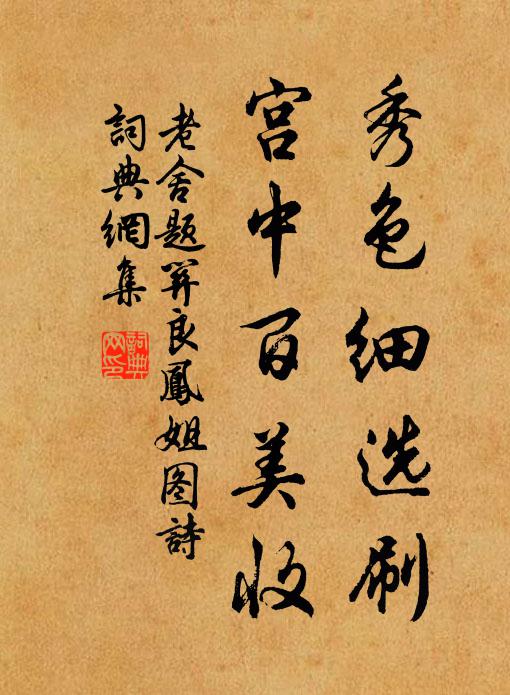 秀色细选刷
宫中百美收
老舍题关良鳳姐图詩
詞典網集
詞典